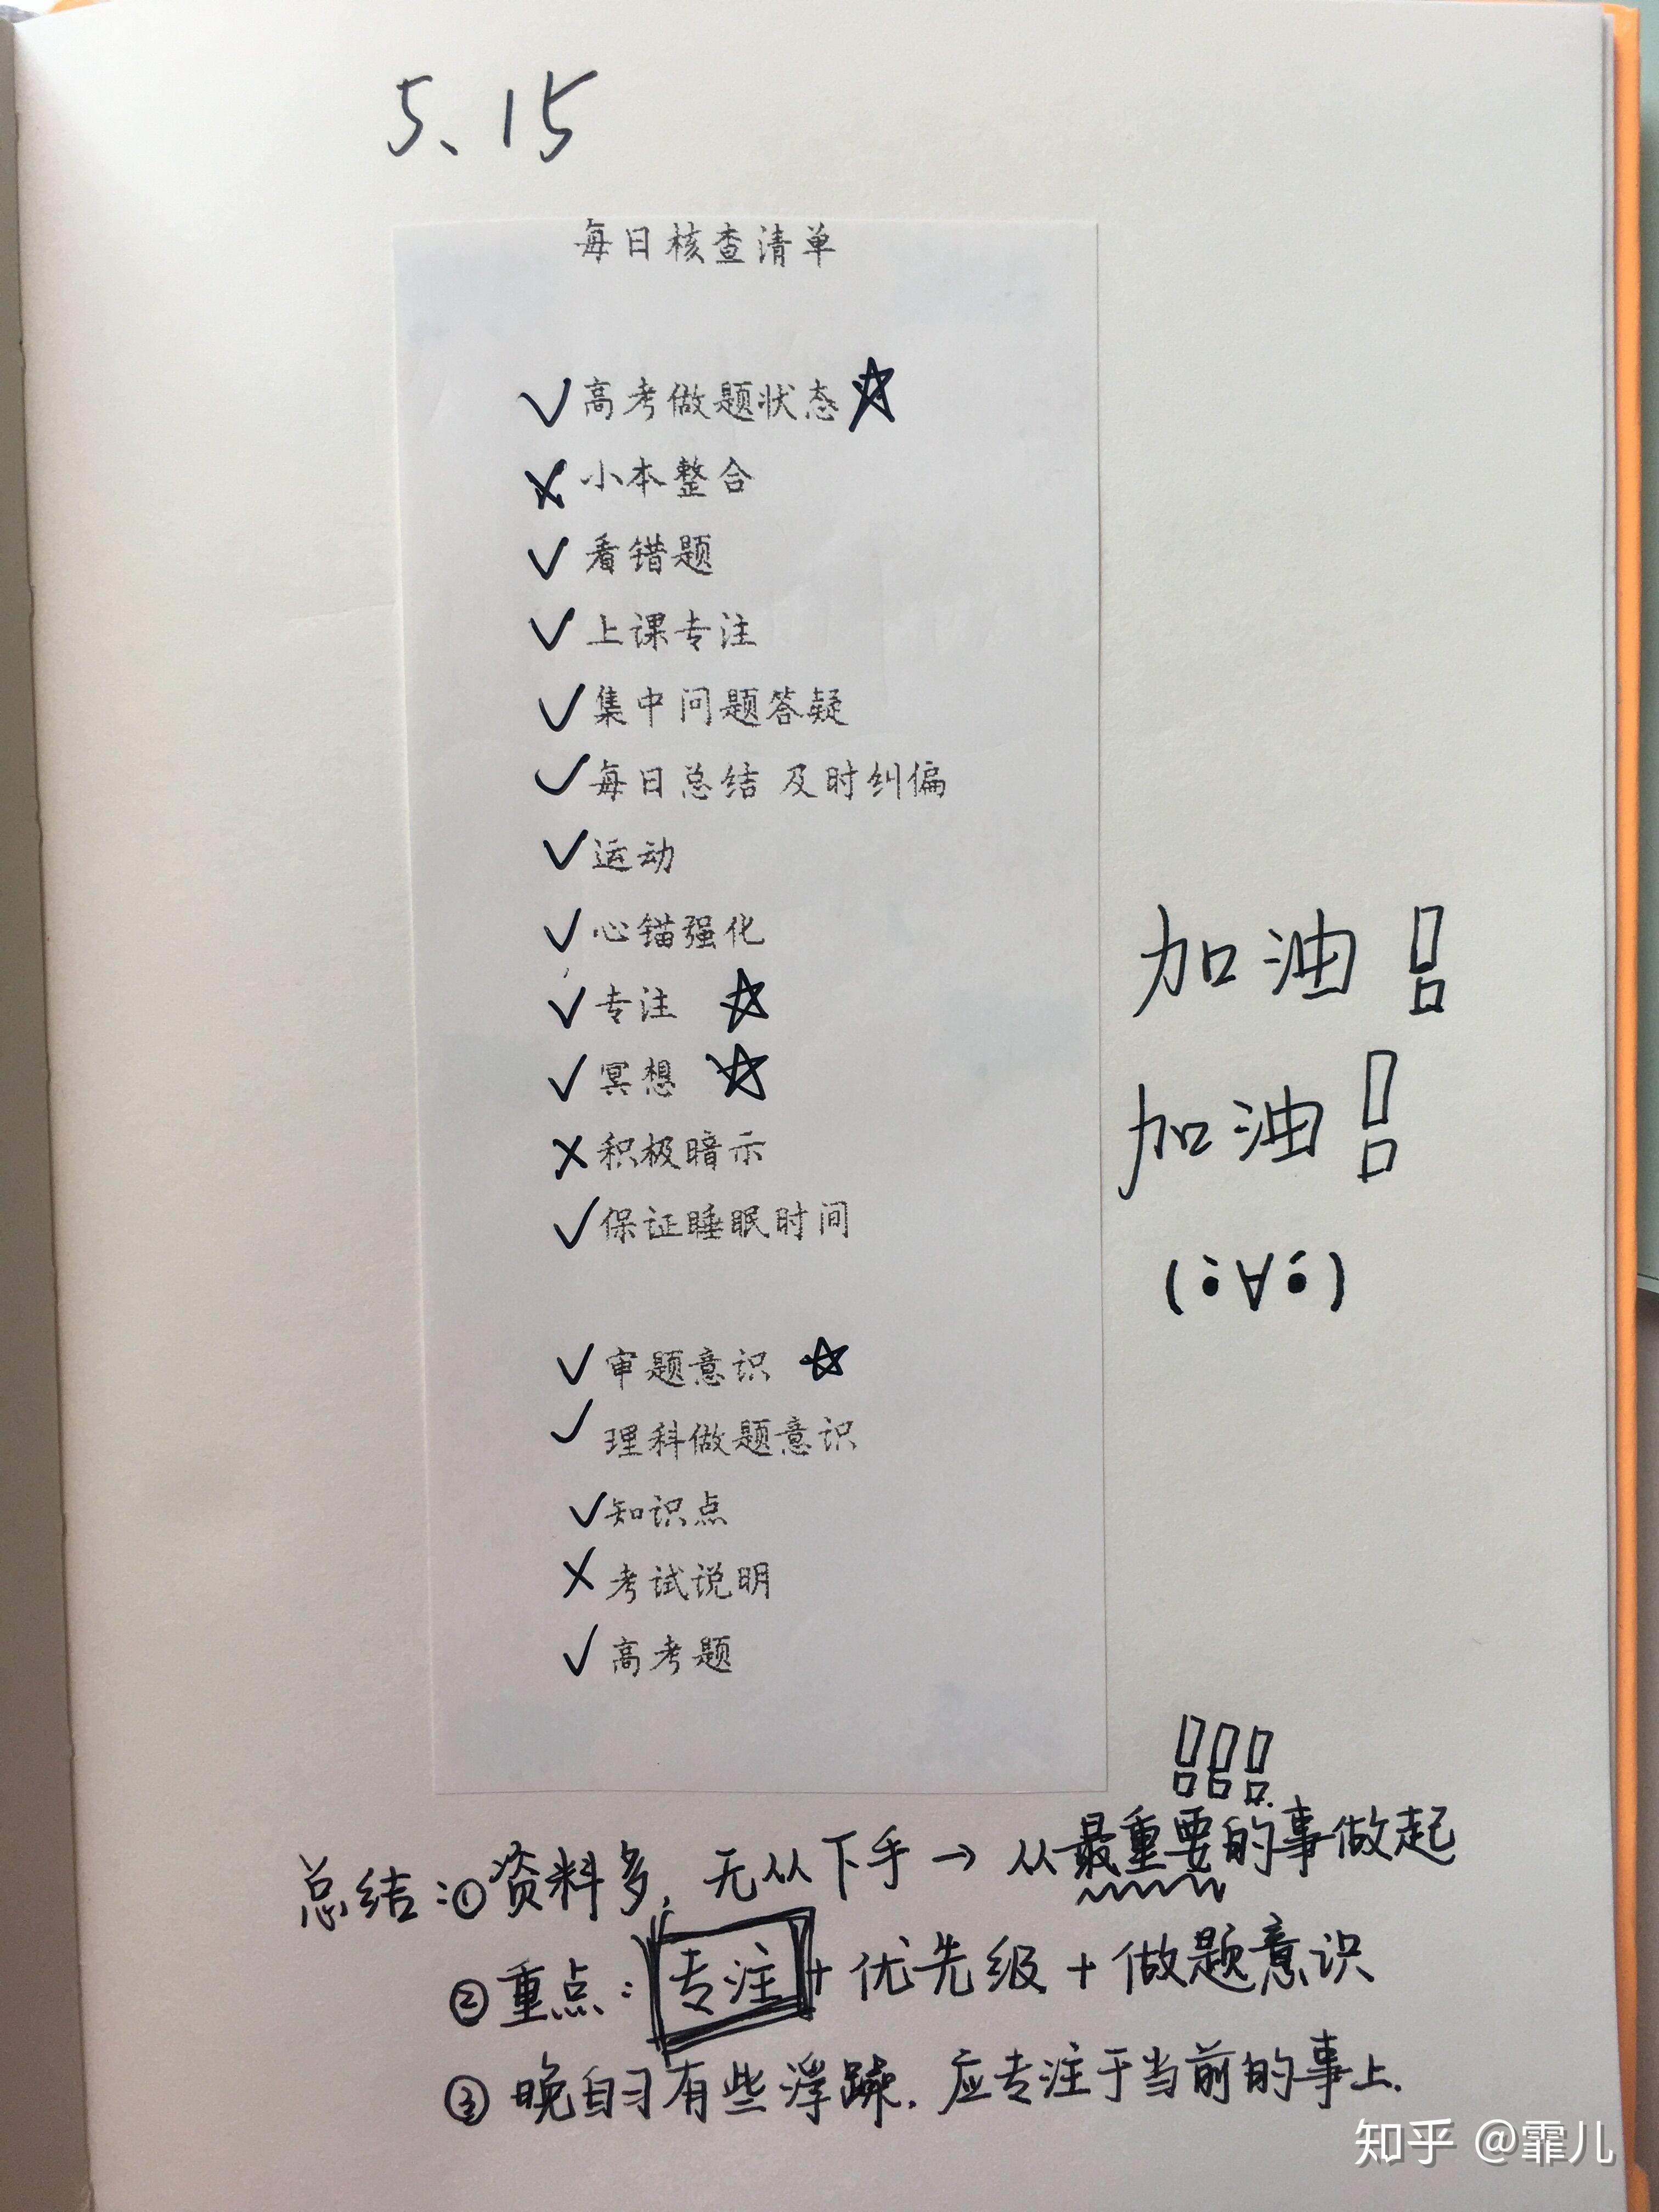 5、15
每日核查清单
✓高考做题状态☆
×小本整合
✓看错题
✓上课专注
✓集中问题答疑
✓每日总结 及时纠偏
✓运动
✓心锚强化
✓专注 ☆
✓冥想 ☆
×积极暗示
✓保证睡眠时间
加油!
加油!
(•̀∀•́)
✓审题意识 ☆
✓理科做题意识
✓知识点
×考试说明
✓高考题
!!!
总结:①资料多,无从下手→从最重要的事做起
②重点:专注+优先级+做题意识
③晚自习有些浮躁.应专注于当前的事上.
知乎 @霏儿